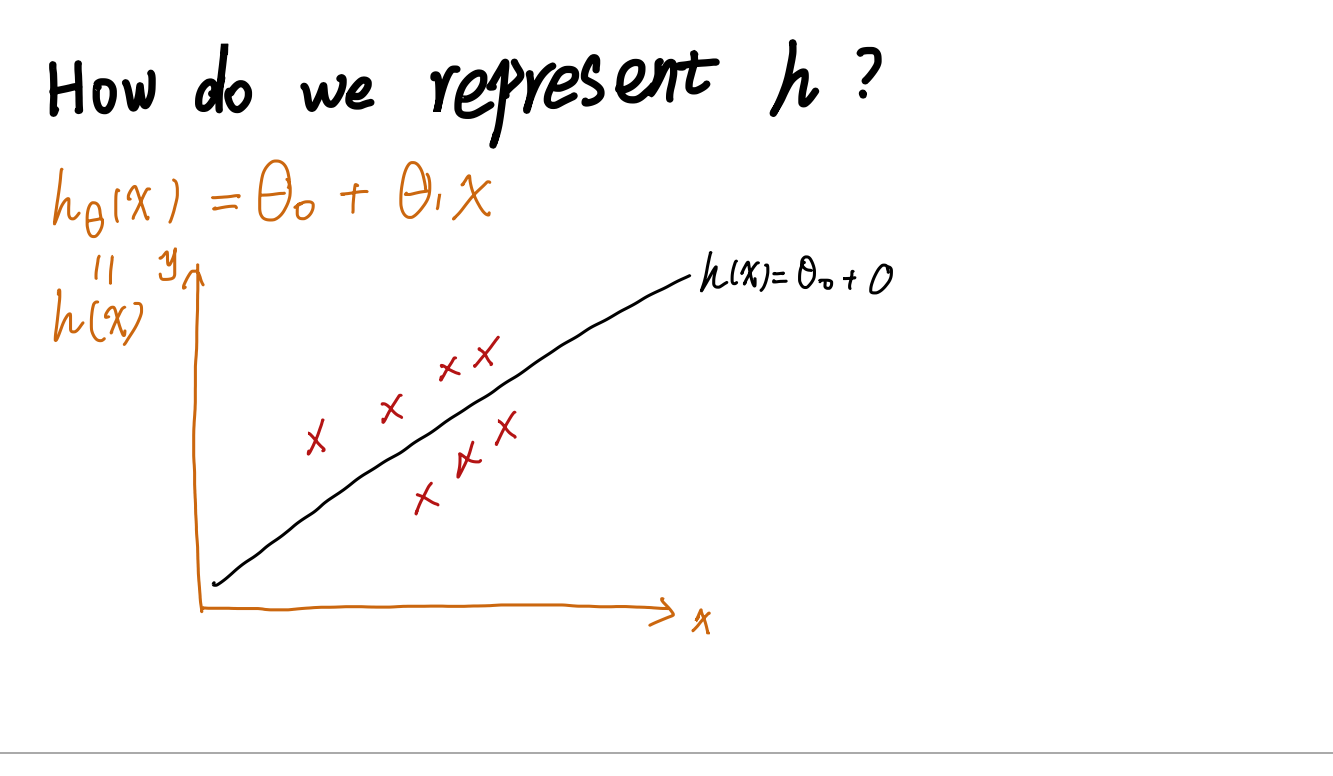 How do we represent h?
hθ(x) = θ₀ + θ₁x
=
h(x)
y
h(x) = θ₀ + 0
x